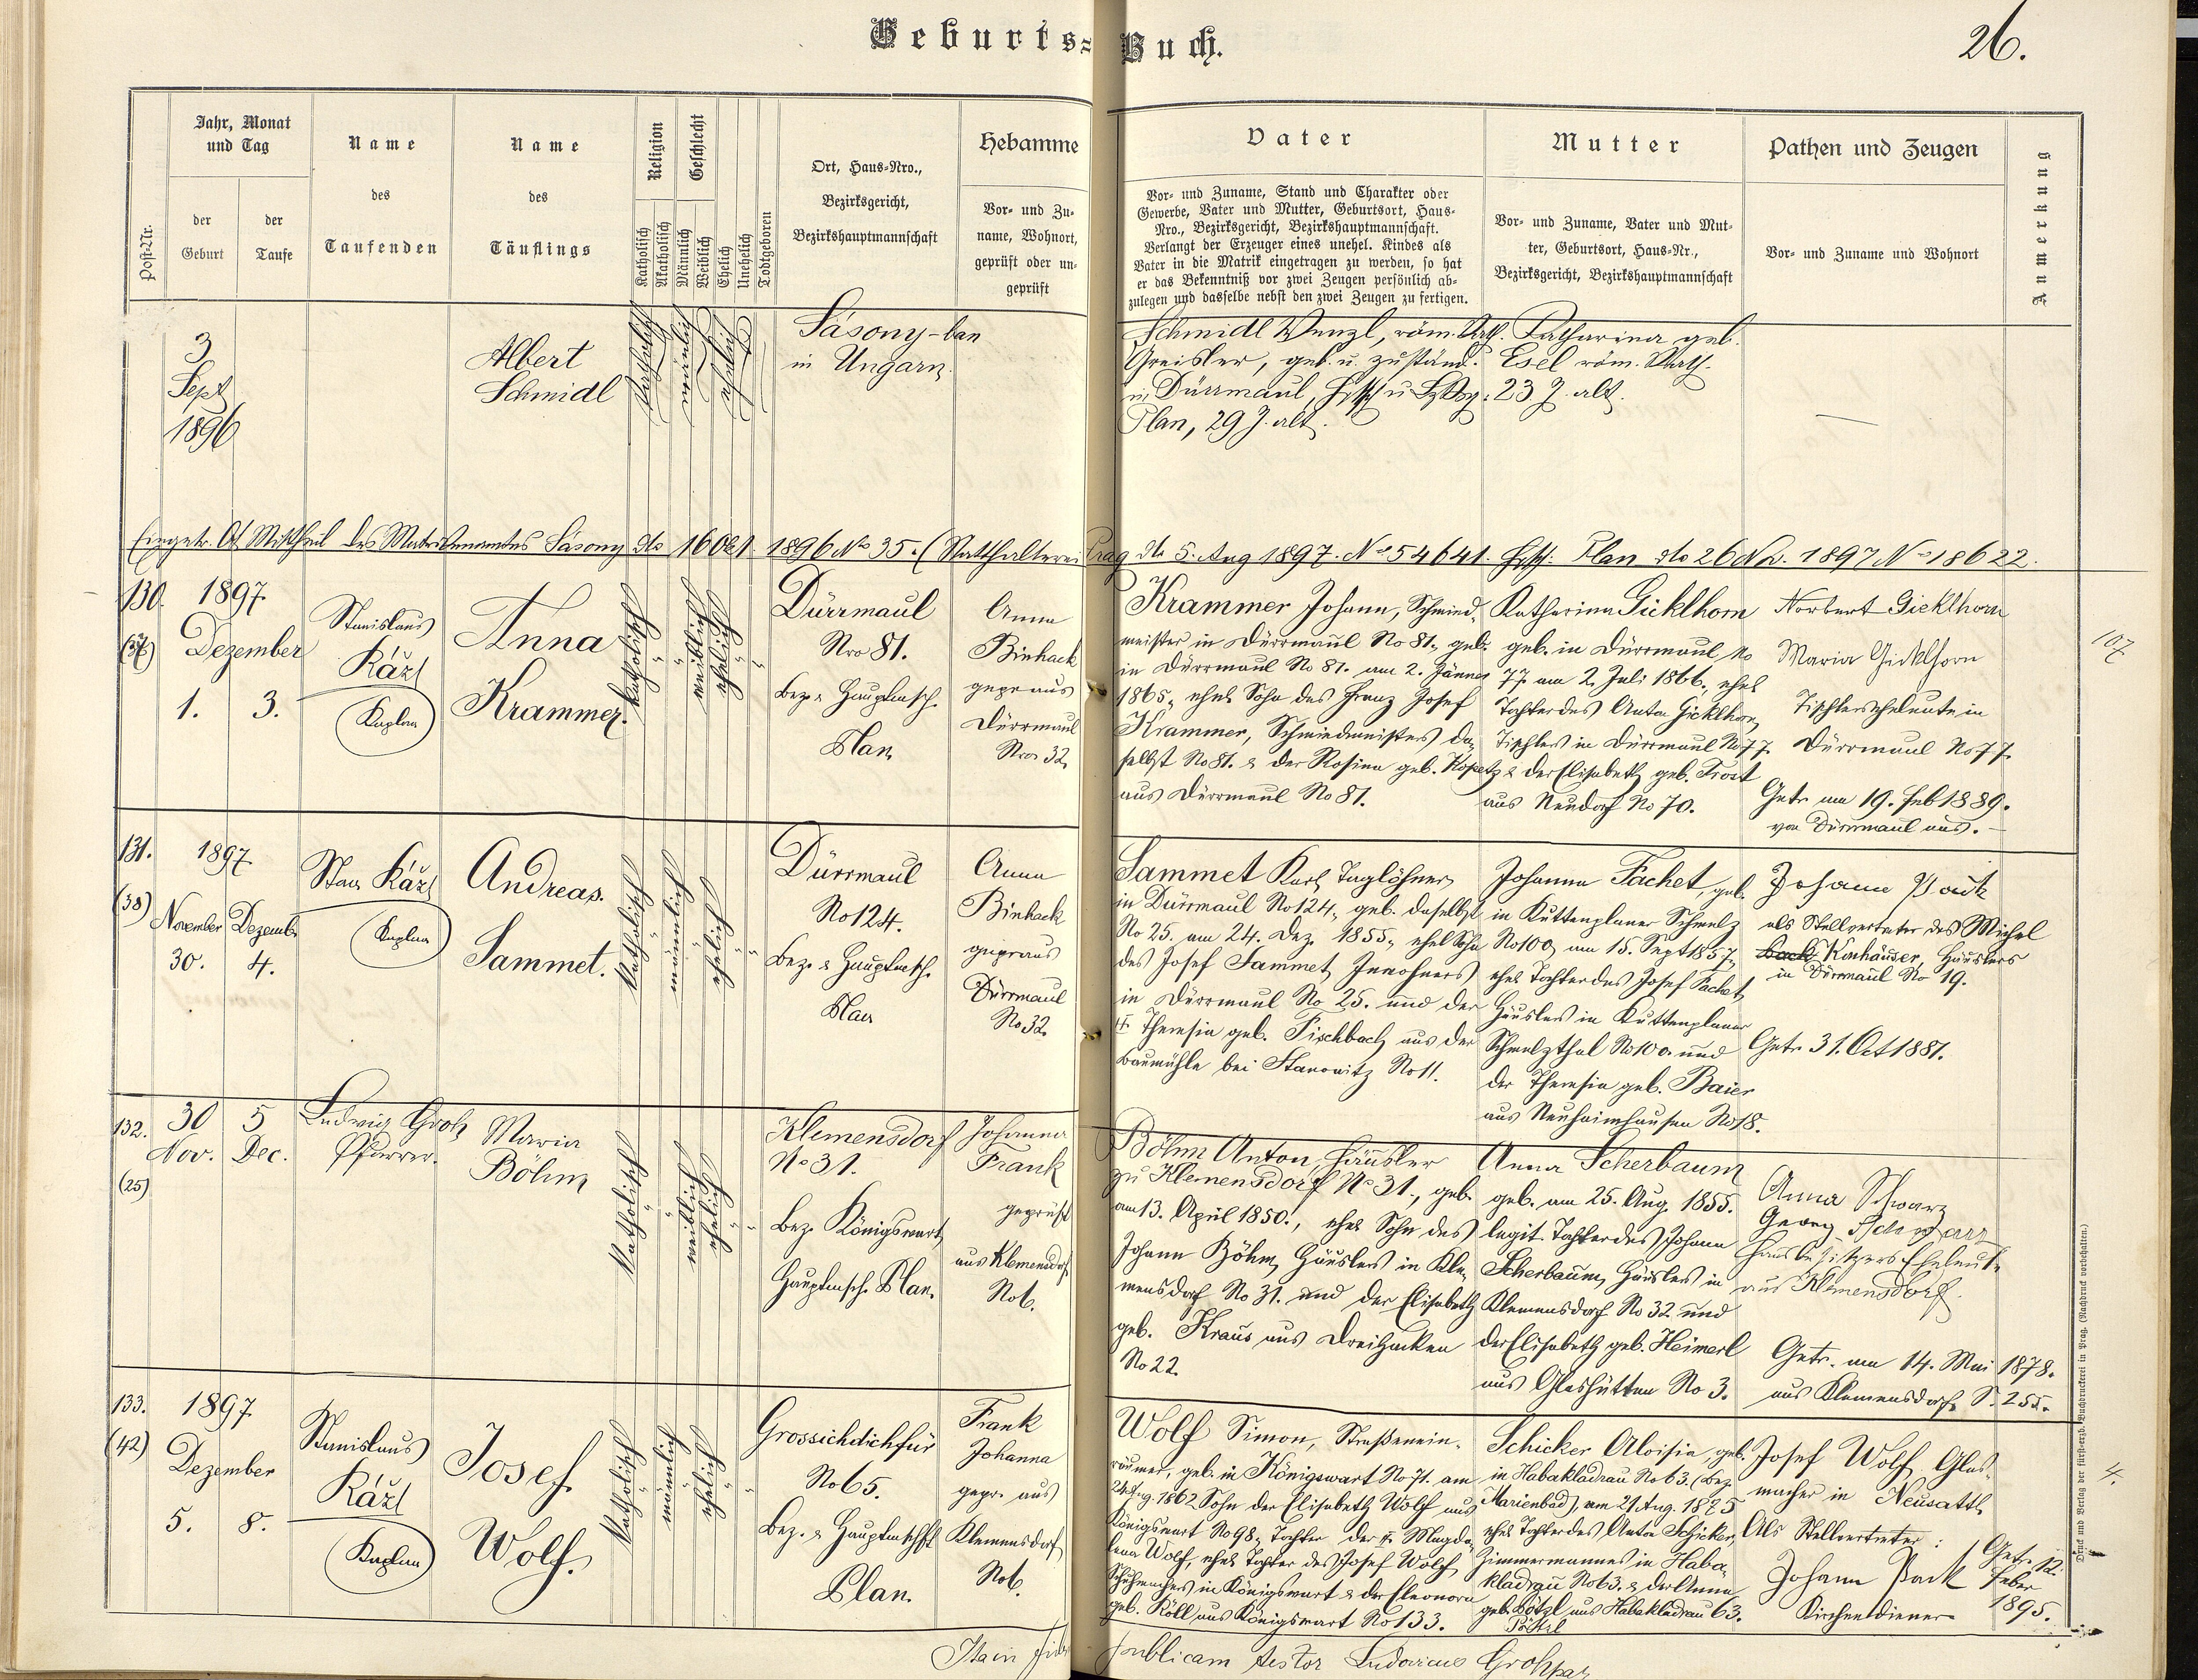 Geburts=Buch.
26.
Post-Nr.
Jahr, Monat
und Tag
der
Geburt
der
Taufe
Name
des
Taufenden
Name
des
Täuflings
Religion
Katholisch
Akatholisch
Geschlecht
Männlich
Weiblich
Ehelich
Unehelich
Todtgeboren
Ort, Haus-Nro.,
Bezirksgericht,
Bezirkshauptmannschaft
Hebamme
Vor- und Zu-
name, Wohnort,
geprüft oder un-
geprüft
Vater
Vor- und Zuname, Stand und Charakter oder
Gewerbe, Vater und Mutter, Geburtsort, Haus-
Nro., Bezirksgericht, Bezirkshauptmannschaft.
Verlangt der Erzeuger eines unehel. Kindes als
Vater in die Matrik eingetragen zu werden, so hat
er das Bekenntniß vor zwei Zeugen persönlich ab-
zulegen und dasselbe nebst den zwei Zeugen zu fertigen.
Mutter
Vor- und Zuname, Vater und Mut-
ter, Geburtsort, Haus-Nr.,
Bezirksgericht, Bezirkshauptmannschaft
Pathen und Zeugen
Vor- und Zuname und Wohnort
Anmerkung
3
Sept
1896
Albert
Schmidl
katholisch
männlich
ehelich
Sásony-ban
in Ungarn
Schmidl Wenzl, röm. Kath.
Greisler, geb. u. zuständ.
in Dürrmaul,
Plan, 29 J. alt.
Katharina geb.
Esel röm. Kath.
23 J. alt.
Eingetr. Mittheil des Matrikenamtes Sásony dto 16 Okt 1896 No 35. (Statthalterei Prag dto 5. Aug 1897. No 54641. Plan dto 26 1897 No 18622.
130.
(37)
1897
Dezember
1. 3.
Stanislaus
Kaplan
Anna
Krammer.
katholisch
weiblich
ehelich
Dürrmaul
Nro 81.
Bez. & Hauptmsch.
Plan
Anna
Binhack
gepr aus
Dürrmaul
Nro 32
Krammer Johann, Schmied-
meister in Dürrmaul No 81., geb.
in Dürrmaul No 81. am 2. Jänner
1865, ehel Sohn des Franz Josef
Krammer, Schmiedmeisters da-
selbst No 81. & der Rosina geb. Kopetz
aus Dürrmaul No 81.
Katharina Gicklhorn
geb. in Dürrmaul No
77 am 2. Juli 1866., ehel
Tochter des Anton Gicklhorn
Tischler in Dürrmaul No 77
& der Elisabeth geb. Trost
aus Neudorf No 70.
Norbert Gicklhorn
Maria Gicklhorn
Tischlerseheleute in
Dürrmaul No 77.
Getr. am 19. Feb 1889.
von Dürrmaul aus.
107
131.
(38)
1897
November Dezemb.
30. 4.
Stan.
Kaplan
Andreas
Sammet.
katholisch
männlich
ehelich
Dürrmaul
No 124.
Bez. & Hauptmsch.
Plan
Anna
Binhack
gepr aus
Dürrmaul
No 32
Sammet Karl, Taglöhner
in Dürrmaul No 124., geb. daselbst
No 25. am 24. Dez. 1855., ehel Sohn
des Josef Sammet, Inwohners
in Dürrmaul No 25. und der
Theresia geb. Fischbach aus der
Baumühle bei Stanowitz No 11.
Johanna Fachet, geb.
in Kuttenplaner Schmelz
No 100, am 15. Sept 1857,
ehel Tochter des Josef Fachet
Häusler in Kuttenplaner
Schmelzthal No 100. und
der Theresia geb. Baier
aus Neuhaimhausen No 18.
Johann Pack
als Stellvertreter des Michel
Konhäuser, Häuslers
in Dürrmaul No 19.
Getr. 31. Oct 1881.
132.
(25)
30 5
Nov. Dec.
Ludwig Groh
Pfarrer.
Maria
Böhm
katholisch
weiblich
ehelich
Klemensdorf
No 31.
Bez. Königswart
Hauptmsch. Plan.
Johanna
Frank
geprüft
aus Klemensdorf
No 6.
Böhm Anton, Häusler
zu Klemensdorf No 31., geb.
am 13. April 1850., ehel Sohn des
Johann Böhm, Häuslers in Kle-
mensdorf No 31. und der Elisabeth
geb. Kraus aus Dreihacken
No 22.
Anna Scherbaum
geb. am 25. Aug. 1855.
legit. Tochter des Johann
Scherbaum, Häusler in
Klemensdorf No 32. und
der Elisabeth geb. Heimerl
aus Glashütten No 3.
Anna Schwarz
Georg Schwarz
Hausbesitzers Eheleute
aus Klemensdorf.
Getr. am 14. Mai 1878.
aus Klemensdorf S. 255.
133.
(42)
1897
Dezember
5. 8.
Stanislaus
Kaplan
Josef
Wolf.
katholisch
männlich
ehelich
Grossichdichfür
No 65.
Bez. & Hauptmschft
Plan.
Frank
Johanna
gepr. aus
Klemensdorf
No 6.
Wolf Simon, Straßenein-
räumer, geb. in Königswart No 71. am
24. Aug. 1862 Sohn der Elisabeth Wolf aus
Königswart No 98., Tochter der Magda-
lena Wolf, ehel Tochter des Josef Wolf
Schuhmachers in Königswart & der Eleonora
geb. Köll aus Königswart No 133.
Schicker Aloisia, geb.
in Habakladrau No 63. (Bez.
Marienbad), am 21 Aug. 1875
ehel Tochter des Anton Schicker,
Zimmermannes in Haba-
kladrau No 63. & der Anna
geb. Pötzl aus Habakladrau 63.
Josef Wolf Glas-
macher in Neusattl
Als Stellvertreter:
Johann Pack
Kirchendiener
Getr. 12.
Feber
1895.
4.
publicam testor Ludovicus Groh
Druck und Verlag der fürst-erzb. Buchdruckerei in Prag. (Nachdruck vorbehalten.)